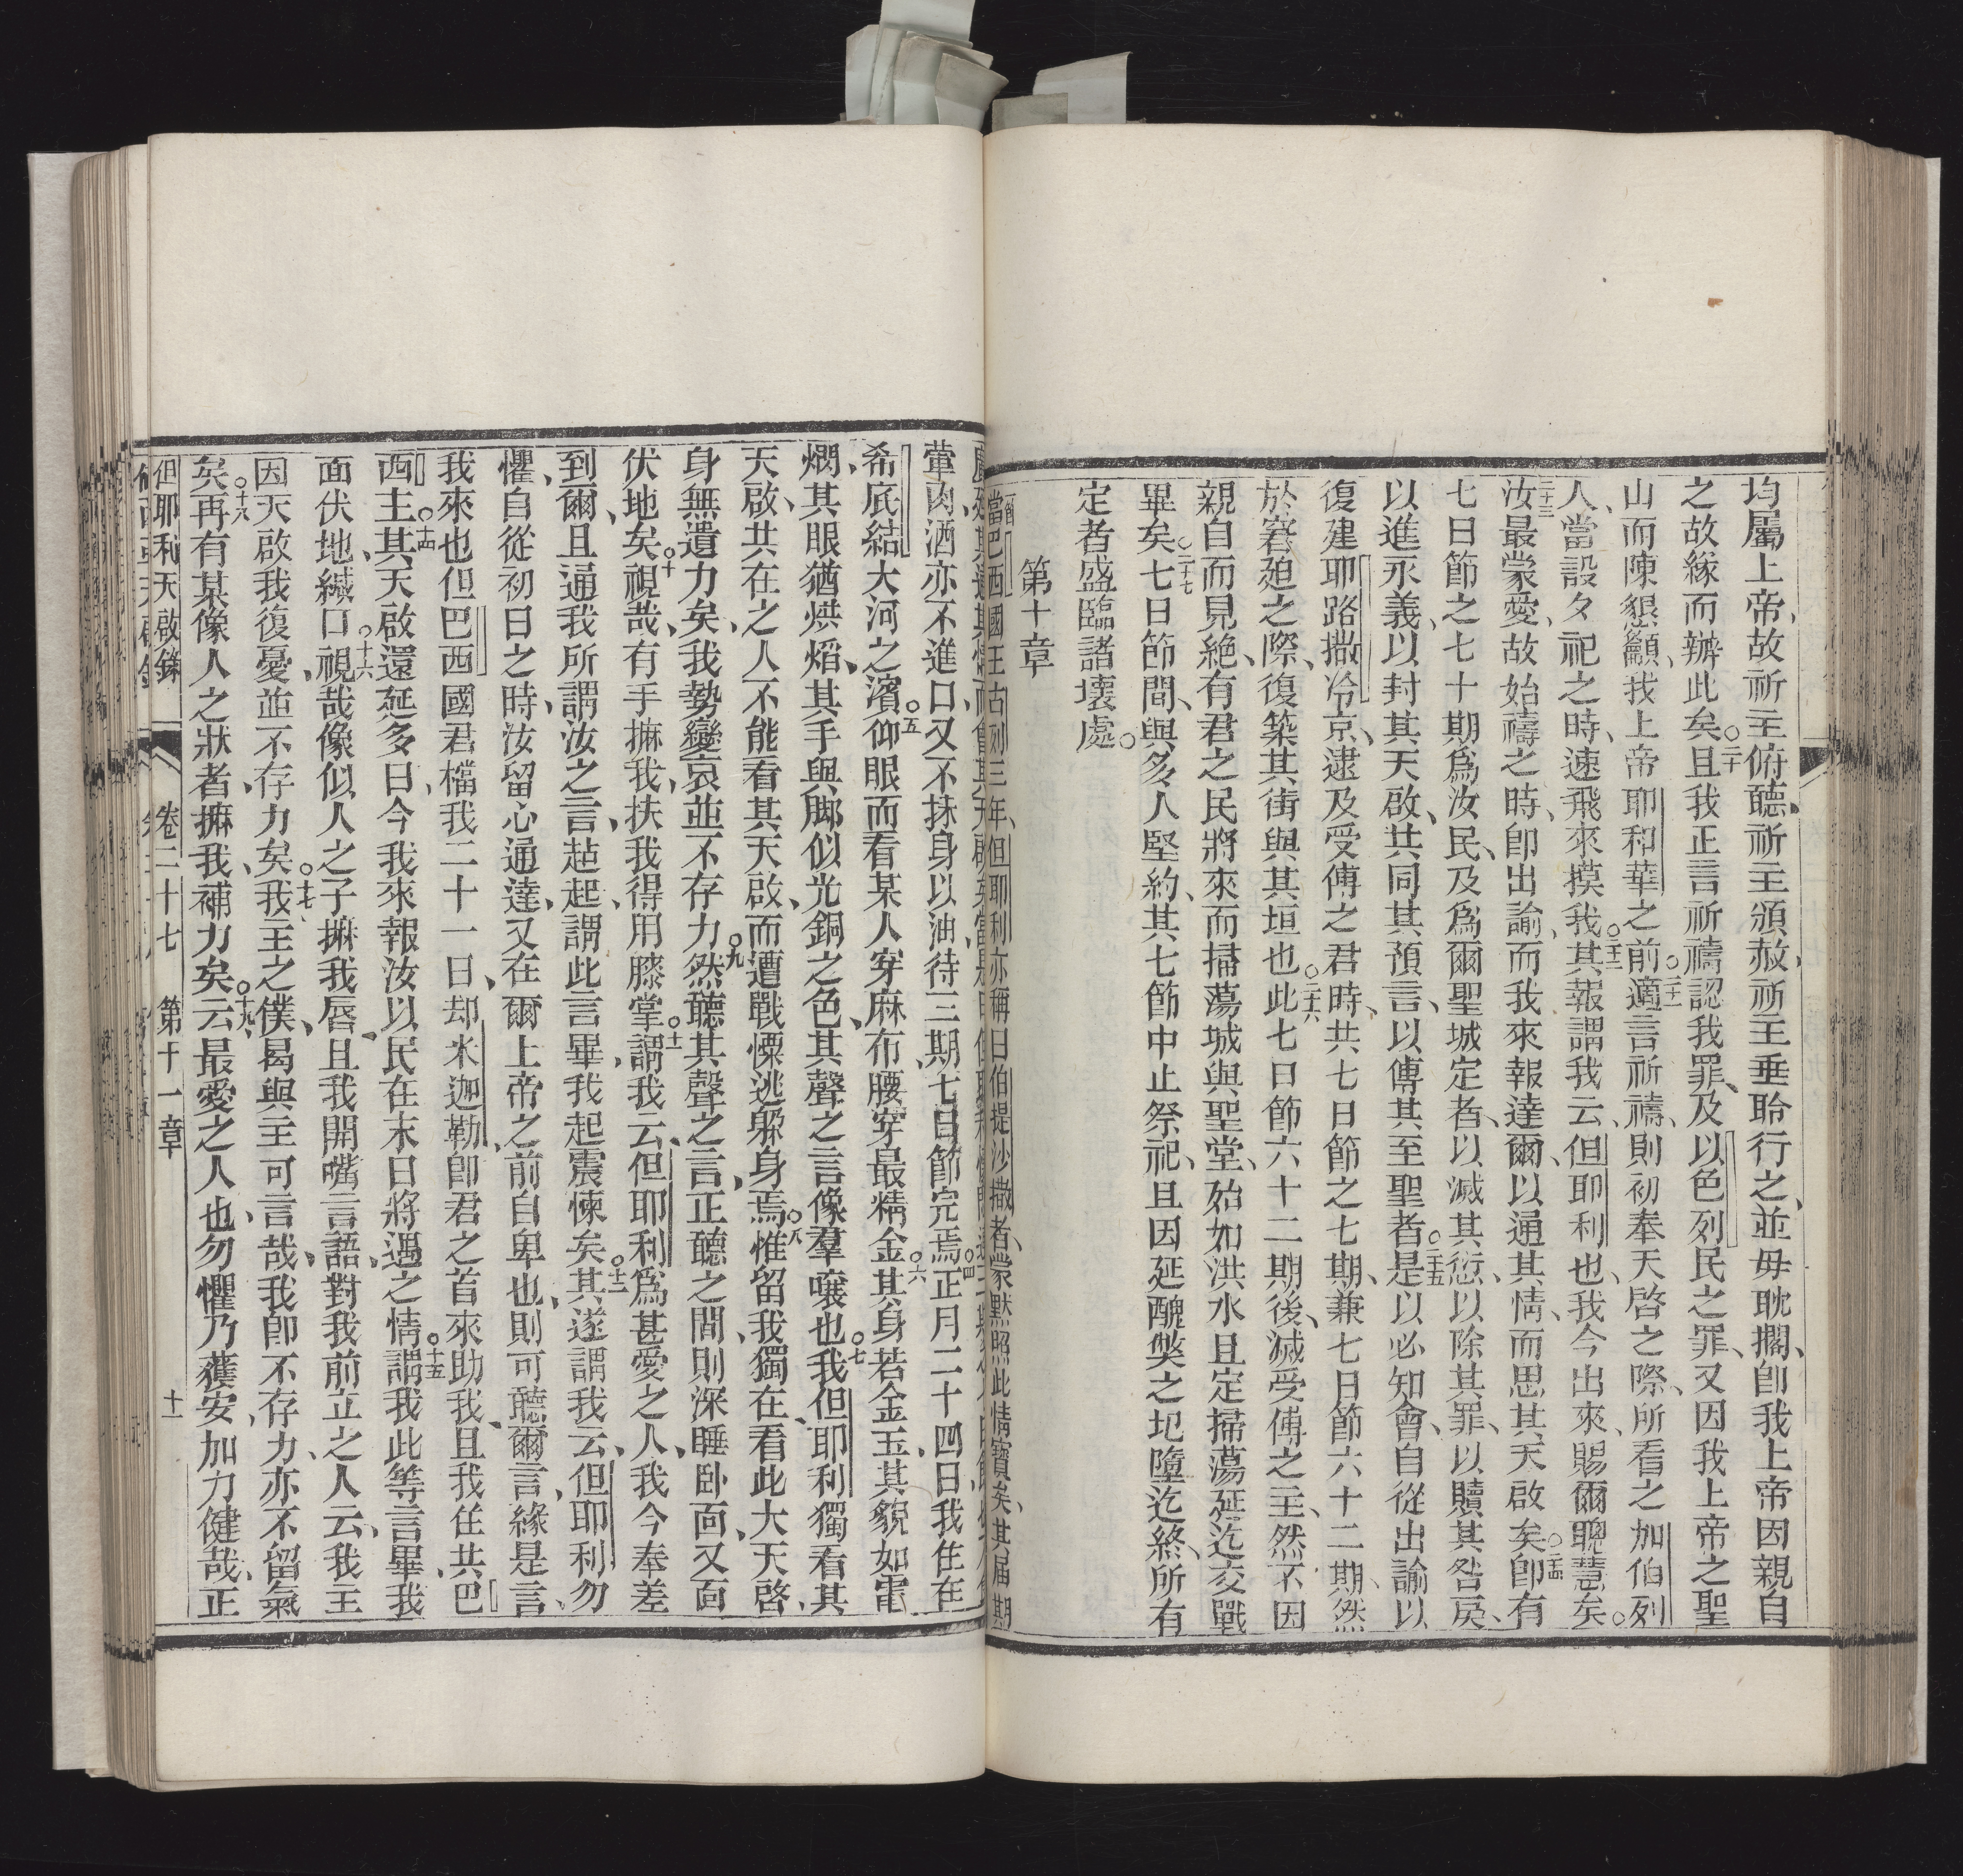 均屬上帝、故祈主俯聽、祈主頒赦、祈主垂聆行之、並毋耽擱、卽我上帝因親自
之故緣而辦此矣。二十且我正言祈禱認我罪、及以色列民之罪、又因我上帝之聖
山而陳懇籲、我上帝耶和華之前、二十一適言祈禱、則初奉天啓之際、所看之加伯列
人、當設夕祀之時、速飛來摸我、二十二其報謂我云、但耶利也、我今出來、賜爾聰慧矣。
二十三汝最蒙愛、故始禱之時、卽出諭、而我來報達爾、以通其情、而思其天啟矣。二十四卽有
七日節之七十期爲汝民、及爲爾聖城定者、以滅其愆、以除其罪、以贖其咎戾、
以進永義、以封其天啟、共同其預言、以傅其至聖者、二十五是以必知會、自從出諭以
復建耶路撒冷京、逮及受傅之君時、共七日節之七期、兼七日節六十二期、然
於窘廹之際、復築其街與其垣也、二十六此七日節六十二期後、滅受傅之主、然不因
親自而見絶、有君之民將來而掃蕩城與聖堂、始如洪水且定掃蕩延迄交戰
畢矣。二十七七日節間、與多人堅約、其七節中止祭祀、且因延醜獘之圮墮迄終、所有
定者盛臨諸壞處。
第十章
當巴西國王古列三年、但耶利亦稱曰伯提沙撒者、蒙默照此情、寶矣、其屆期
葷肉、酒亦不進口、又不抹身以油、待三期七日節完焉、四正月二十四日、我住在
希底結大河之濱、五仰眼而看某人穿麻布、腰穿最精金、六其身若金玉、其貌如電
燗、其眼猶烘熖、其手與脚似光銅之色、其聲之言像羣嚷也、七我但耶利獨看其
天啟、共在之人、不能看其天啟、而遭戰慄逃躲身焉、八惟留我獨在看此大天啓、
身無遺力矣、我勢變哀、並不存力、九然聽其聲之言、正聽之間、則深睡卧面、又面
伏地矣。十視哉、有手摸我、扶我得用膝掌、十一謂我云、但耶利爲甚愛之人、我今奉差
到爾、且通我所謂汝之言、起起、謂此言畢、我起震悚矣。十二其遂謂我云、但耶利勿
懼、自從初日之時、汝留心通達、又在爾上帝之前自卑也、則可聽爾言、緣是言、
我來也、但巴西國君檔我二十一日、却米迦勒卽君之首來助我、且我住共巴
西主、十四其天啟還延多日、今我來報汝以民在末日將遇之情、十五謂我此等言畢、我
面伏地、緘口、十六視哉、像似人之子摸我唇、且我開嘴言語、對我前立之人云、我主
因天啟我復憂、並不存力矣。十七我主之僕、曷與主可言哉、我卽不存力、亦不留氣
矣。十八再有某像人之狀者、摸我、補力矣。十九云最愛之人也、勿懼、乃獲安、加力健哉、正
但耶利天啟錄　卷二十七　第十一章　十一